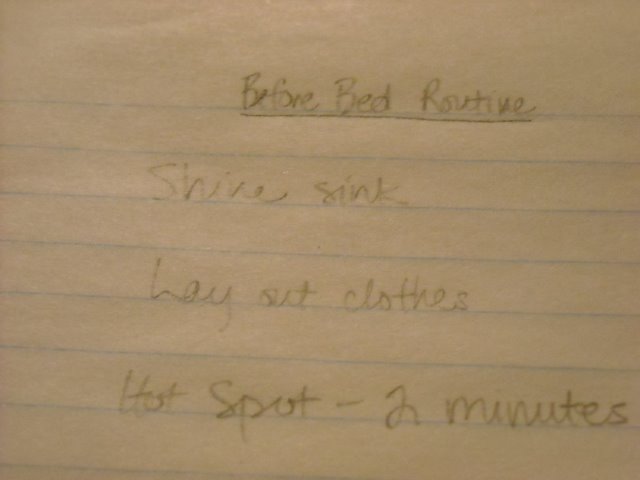 Before Bed Routine
Shine sink
Lay out clothes
Hot Spot - 2 minutes